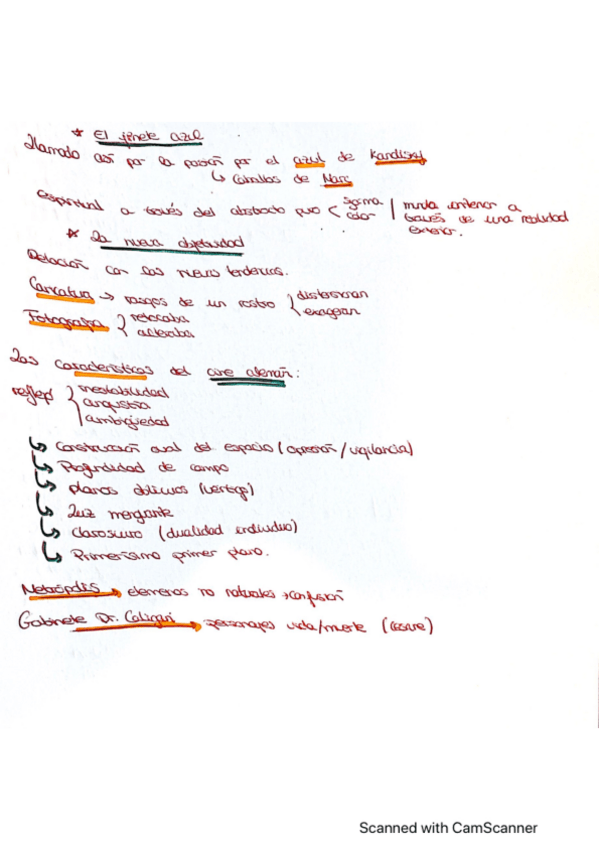 * El jinete azul
llamado así por la pasión por el azul de Kandisky
↳ Caballos de Marc
espiritual a través del abstracto puro < forma color | mundo interior a través de una realidad exterior.
* La nueva objetividad
Relación con las nuevas tendencias.
Caricatura → rasgos de un rostro { distorsionan
exageran
Fotografía { retocaba
alteraba
Las características del cine alemán:
reflejo { inestabilidad
angustia
ambigüedad
Construcción oval del espacio (opresión/vigilancia)
Profundidad de campo
planos oblicuos (vértigo)
Luz
Claroscuro (dualidad individuo)
Primerísimo primer plano.
Metrópolis → elementos no naturales → confusión
Gabinete Dr. Caligari → personajes vida/muerte
Scanned with CamScanner